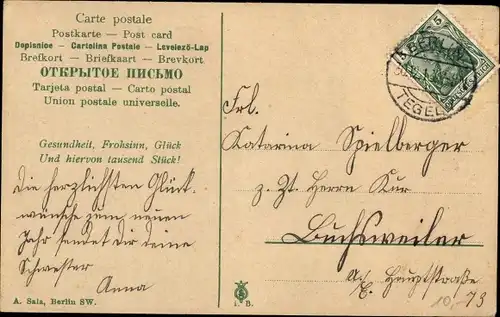 Carte postale
Postkarte — Post card
Dopisnice — Cartolina Postale — Levelező-Lap
Brefkort — Briefkaart — Brevkort
ОТКРЫТОЕ ПИСЬМО
Tarjeta postal — Carto postal
Union postale universelle.
Gesundheit, Frohsinn, Glück
Und hiervon tausend Stück!
Die herzlichsten Glück-
wünsche zum neuen
Jahr sendet dir deine
Schwester
Anna
A. Sala, Berlin SW.
5
BERLIN
TEGEL
Frl.
Katarina Spielberger
z. Zt. Herrn Kur
Buchsweiler
Hauptstraße
73
10,-